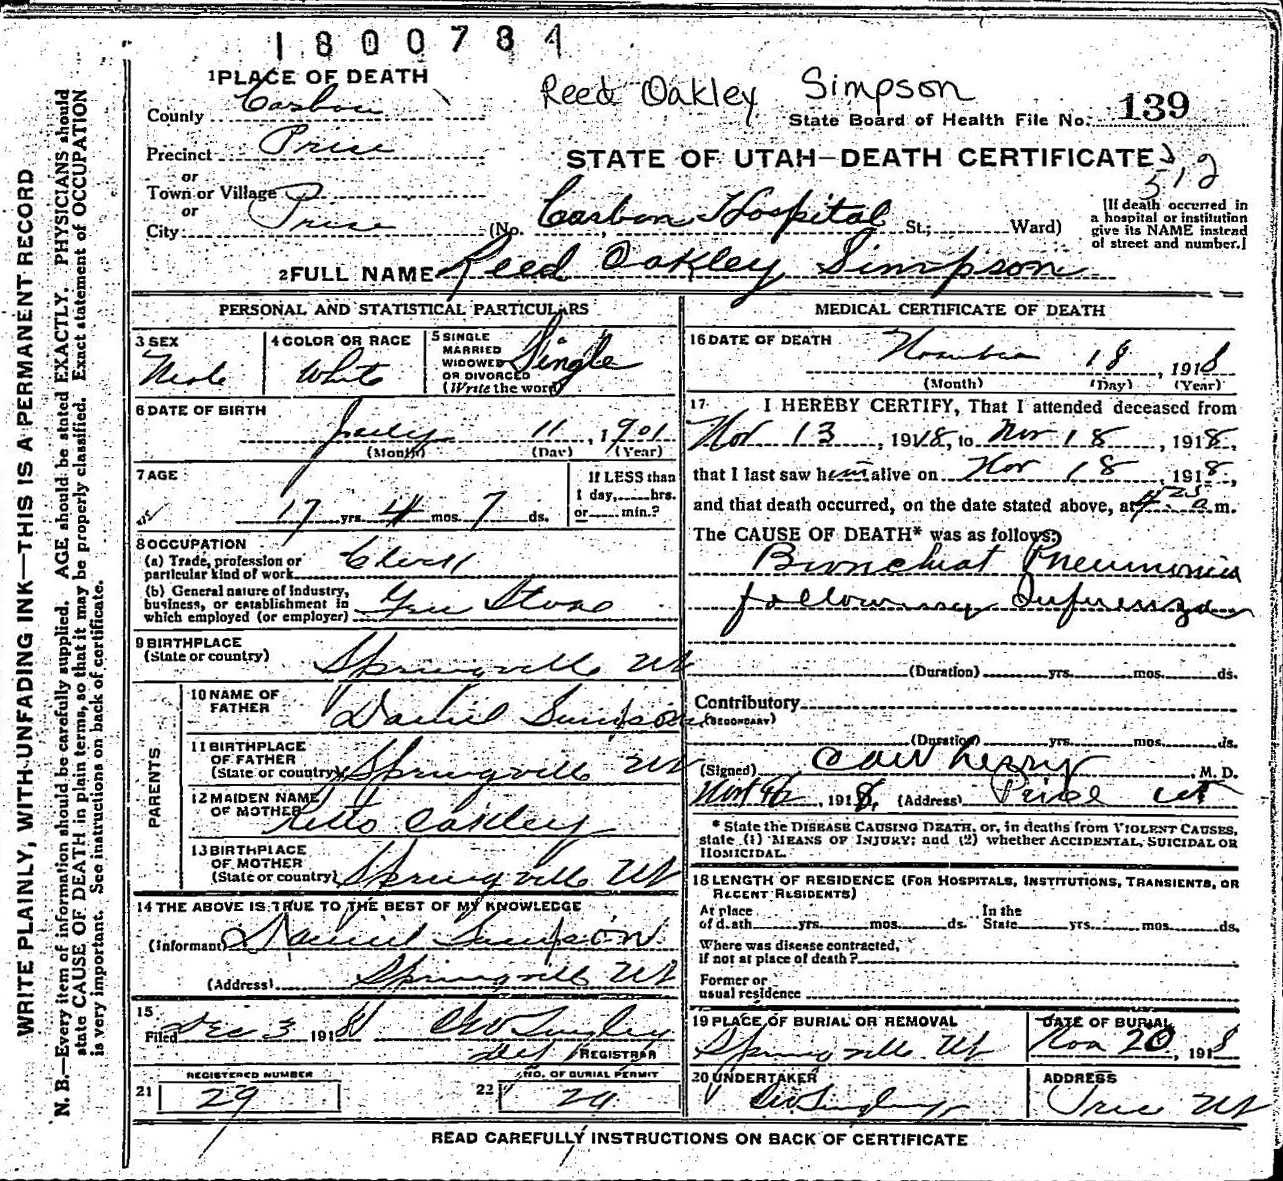 1800784
1 PLACE OF DEATH
Reed Oakley Simpson
County Carbon
State Board of Health File No. 139
Precinct Price
STATE OF UTAH—DEATH CERTIFICATE
512
or
Town or Village
or
City Price (No. Carbon Hospital St.; Ward)
[If death occurred in
a hospital or institution
give its NAME instead
of street and number.]
2 FULL NAME Reed Oakley Simpson
WRITE PLAINLY, WITH UNFADING INK—THIS IS A PERMANENT RECORD
N. B.—Every item of information should be carefully supplied. AGE should be stated EXACTLY. PHYSICIANS should
state CAUSE OF DEATH in plain terms, so that it may be properly classified. Exact statement of OCCUPATION
is very important. See instructions on back of certificate.
PERSONAL AND STATISTICAL PARTICULARS
3 SEX
Male
4 COLOR OR RACE
White
5 SINGLE
MARRIED
WIDOWED
OR DIVORCED
(Write the word)
Single
6 DATE OF BIRTH
July 11, 1901
(Month) (Day) (Year)
7 AGE
17 yrs. 4 mos. 7 ds.
If LESS than
1 day, hrs.
or min.?
8 OCCUPATION
(a) Trade, profession or
particular kind of work Clerk
(b) General nature of industry,
business, or establishment in
which employed (or employer) Gen Store
9 BIRTHPLACE
(State or country) Springville Ut
PARENTS
10 NAME OF
FATHER Daniel Simpson
11 BIRTHPLACE
OF FATHER
(State or country) Springville Ut
12 MAIDEN NAME
OF MOTHER Oakley
13 BIRTHPLACE
OF MOTHER
(State or country) Springville Ut
14 THE ABOVE IS TRUE TO THE BEST OF MY KNOWLEDGE
(Informant) Daniel Simpson
(Address) Springville Ut
15
Filed Dec 3 1918
REGISTRAR
REGISTERED NUMBER
21 29
NO. OF BURIAL PERMIT
22 29
MEDICAL CERTIFICATE OF DEATH
16 DATE OF DEATH
November 18, 1918
(Month) (Day) (Year)
17 I HEREBY CERTIFY, That I attended deceased from
Nov 13, 1918, to Nov 18, 1918,
that I last saw him alive on Nov 18, 1918,
and that death occurred, on the date stated above, at 4 25 a m.
The CAUSE OF DEATH* was as follows:
Bronchial Pneumonia
following Influenza
(Duration) yrs. mos. ds.
Contributory
(SECONDARY)
(Duration) yrs. mos. ds.
(Signed) M. D.
Nov 1918, (Address) Price Ut
* State the DISEASE CAUSING DEATH, or, in deaths from VIOLENT CAUSES,
state (1) MEANS OF INJURY; and (2) whether ACCIDENTAL, SUICIDAL OR
HOMICIDAL.
18 LENGTH OF RESIDENCE (FOR HOSPITALS, INSTITUTIONS, TRANSIENTS, OR
RECENT RESIDENTS)
At place
of death yrs. mos. ds. In the
State yrs. mos. ds.
Where was disease contracted,
if not at place of death?
Former or
usual residence
19 PLACE OF BURIAL OR REMOVAL
Springville Ut
DATE OF BURIAL
Nov 20, 1918
20 UNDERTAKER
ADDRESS
Price Ut
READ CAREFULLY INSTRUCTIONS ON BACK OF CERTIFICATE